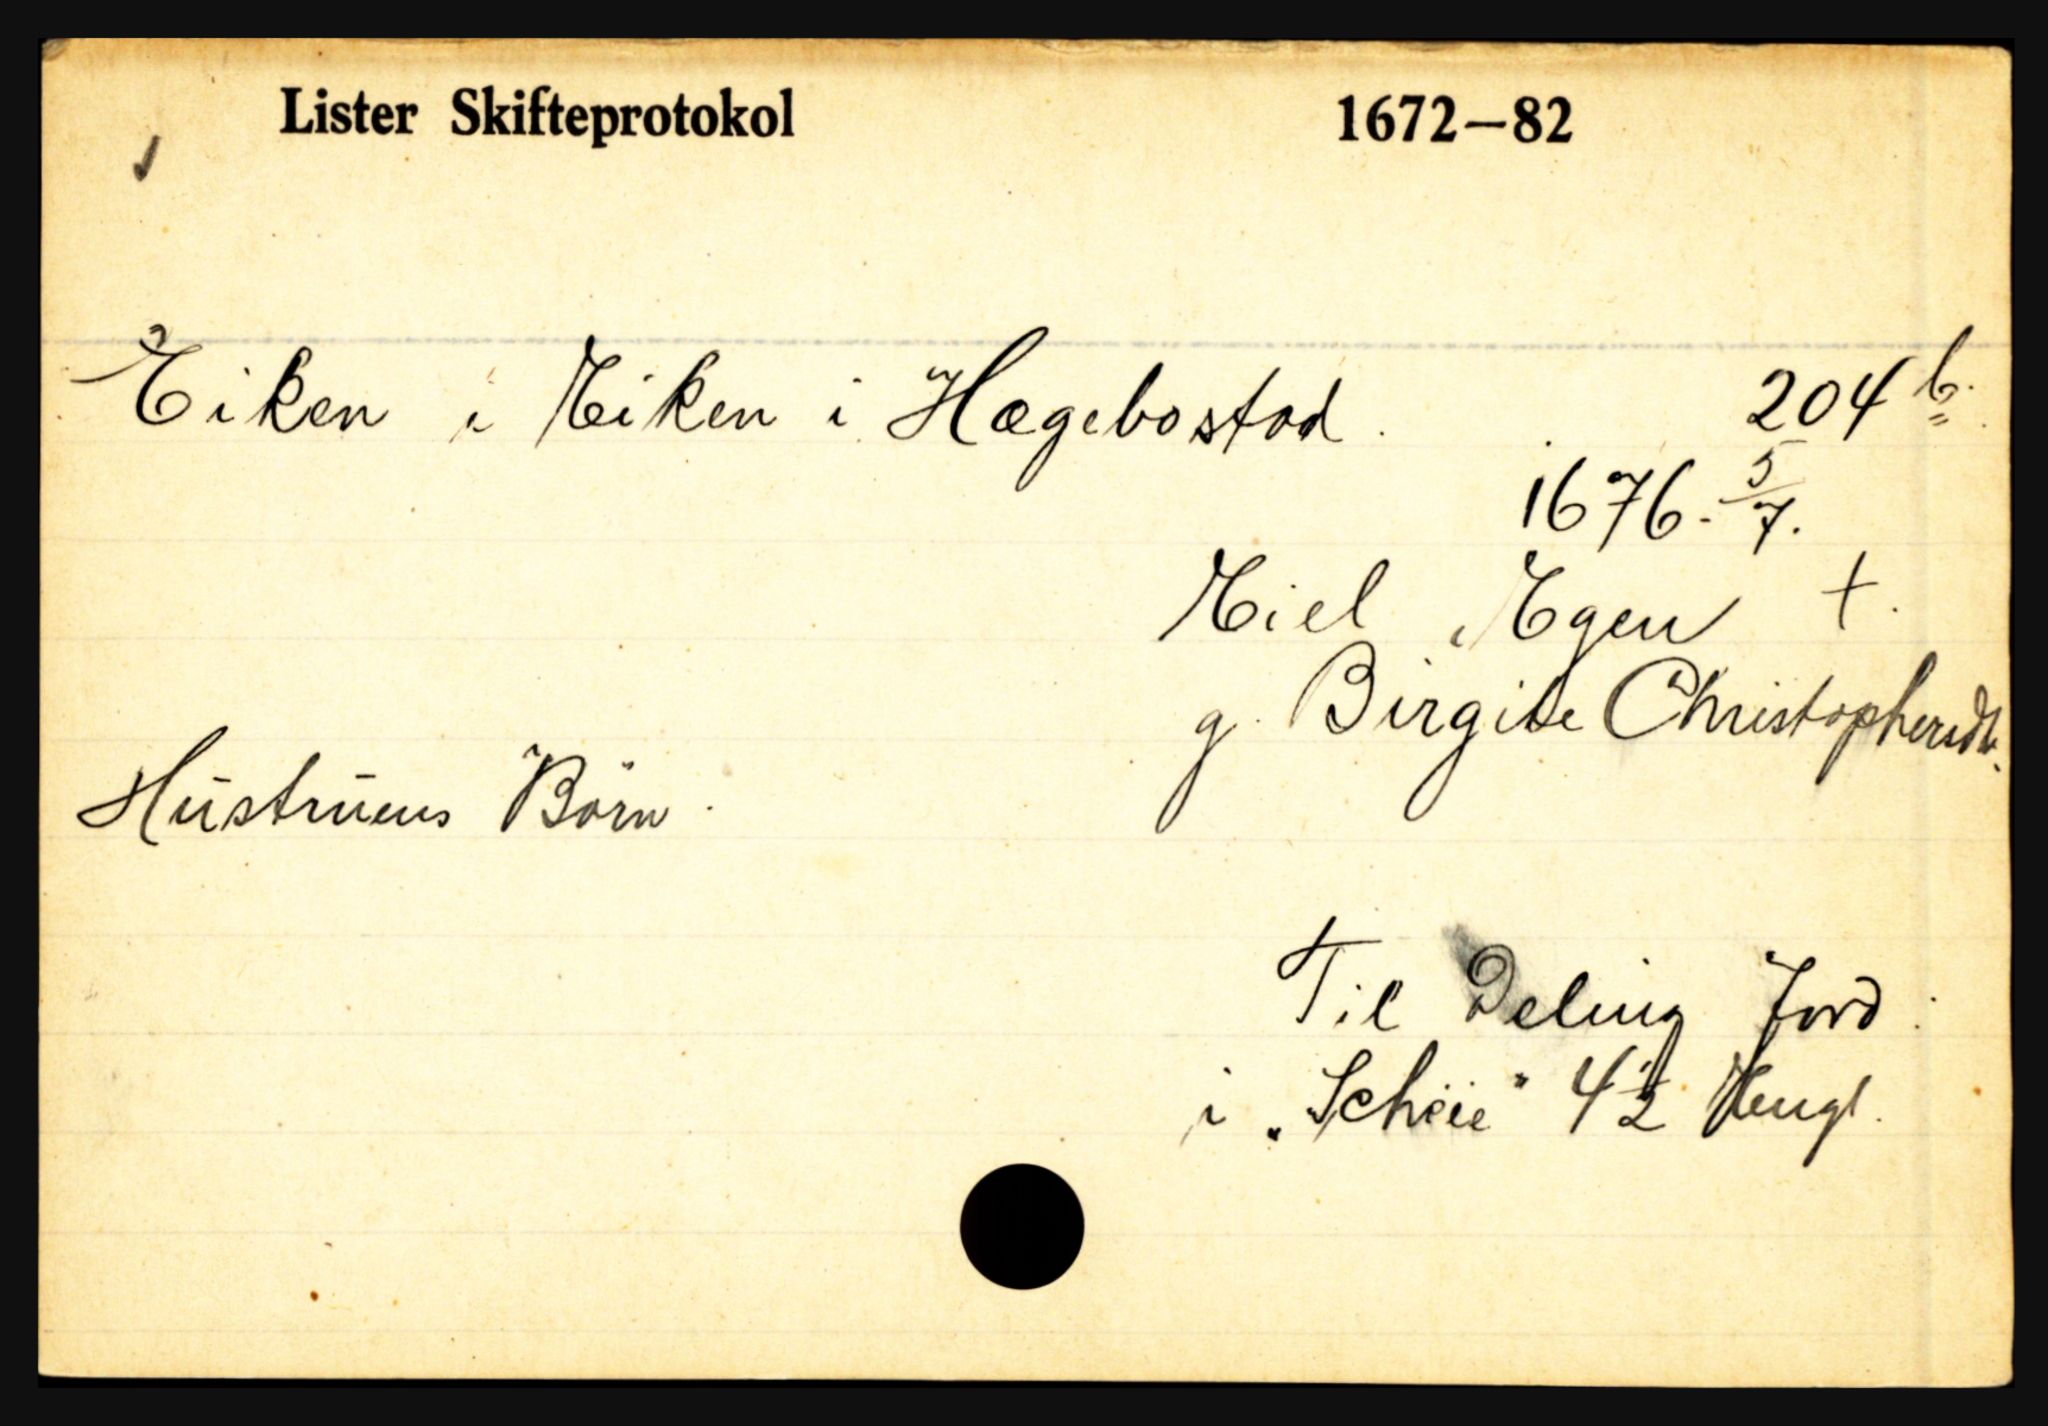 Lister Skifteprotokol 1672—82
Eiken i Eiken i Hægebostad. 204 b.
1676 - 5/7.
Eiel Egen †.
g. Birgite Christophersdtr.
Hustruens Börn.
Til Deling Jord:
i „Scheie" 4½ Hengl.